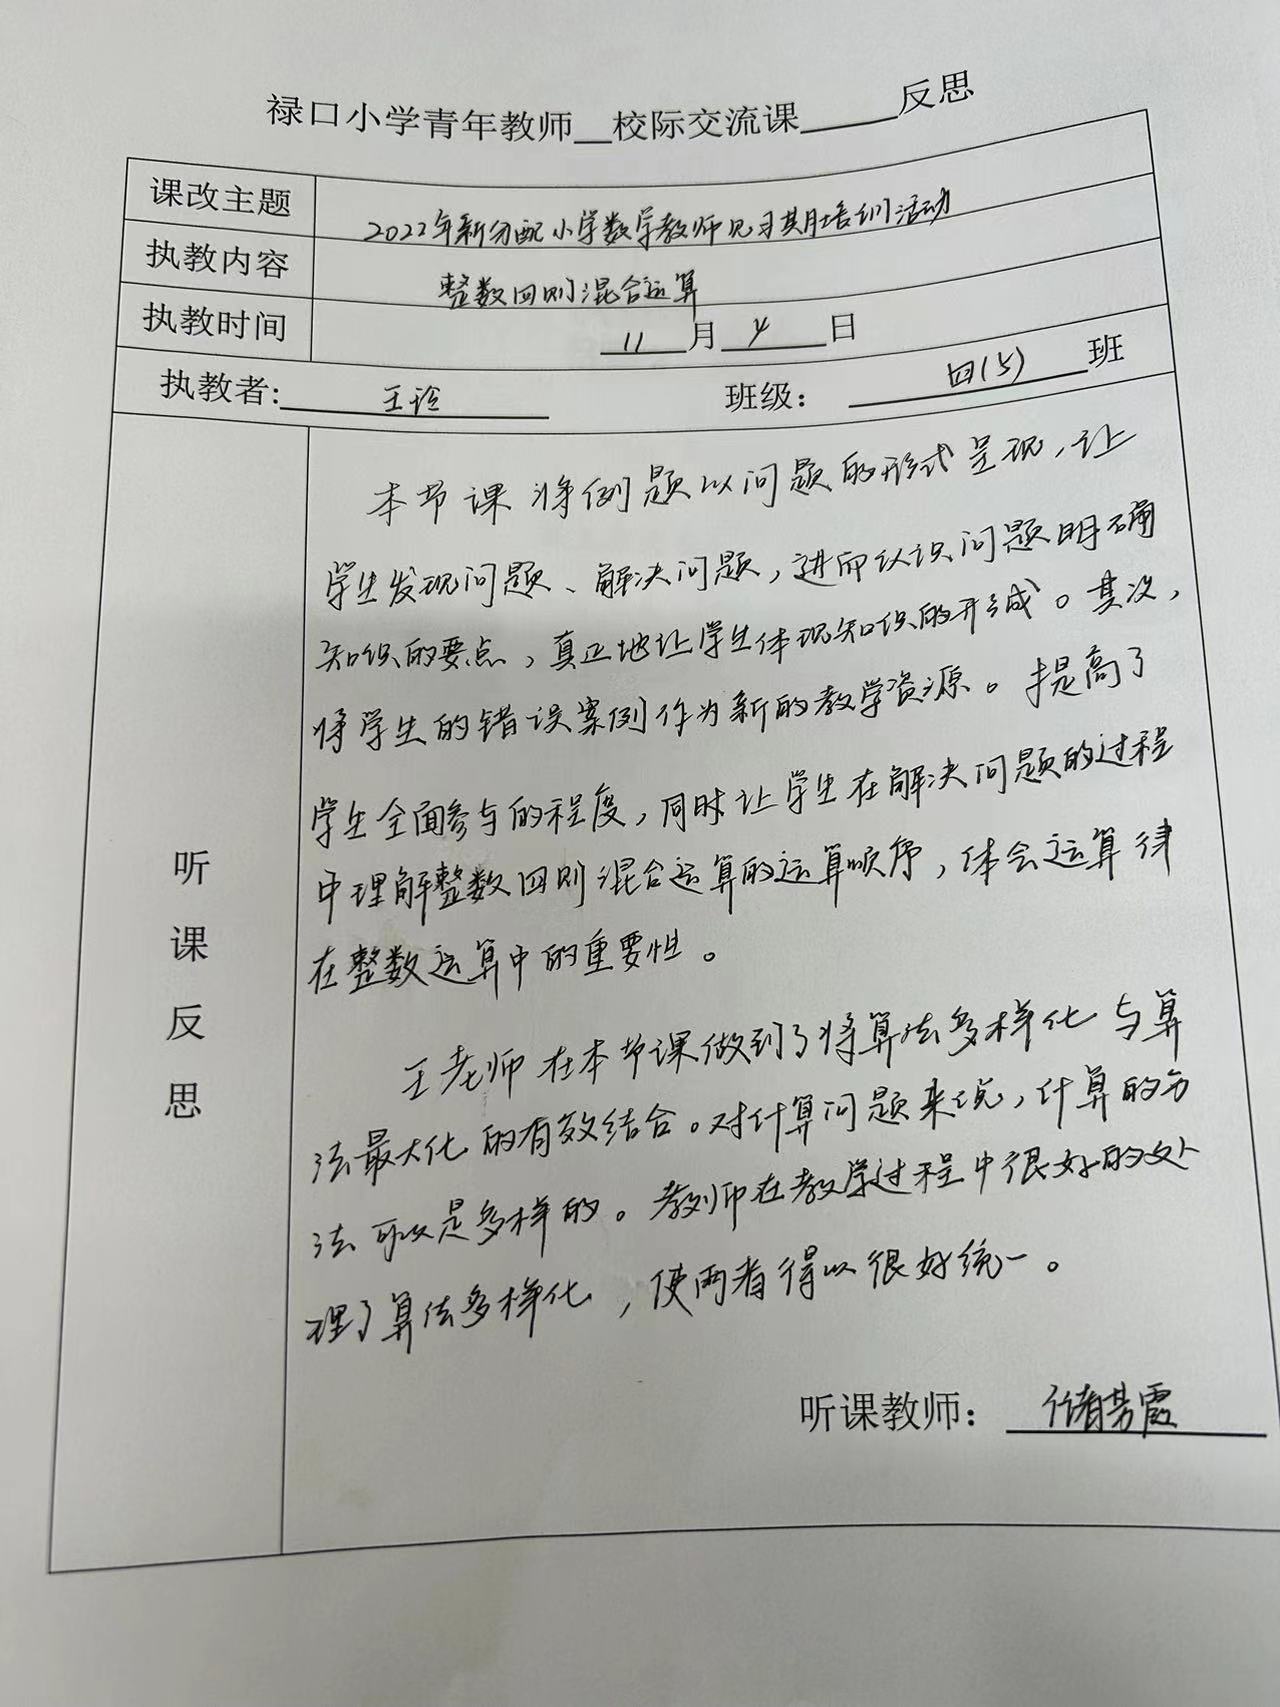 禄口小学青年教师__校际交流课_____反思
课改主题 2022年新分配小学数学教师见习期培训活动
执教内容 整数四则混合运算
执教时间 11月4日
执教者: 王玲 班级: 四(5)班
听课反思
本节课将例题以问题的形式呈现,让
学生发现问题、解决问题,进而认识问题明确
知识的要点,真正地让学生体现知识的形成。其次,
将学生的错误案例作为新的教学资源。提高了
学生全面参与的程度,同时让学生在解决问题的过程
中理解整数四则混合运算的运算顺序,体会运算律
在整数运算中的重要性。
王老师在本节课做到了将算法多样化与算
法最大化的有效结合。对计算问题来说,计算的方
法可以是多样的。教师在教学过程中很好的处
理了算法多样化,使两者得以很好统一。
听课教师: 储芳霞